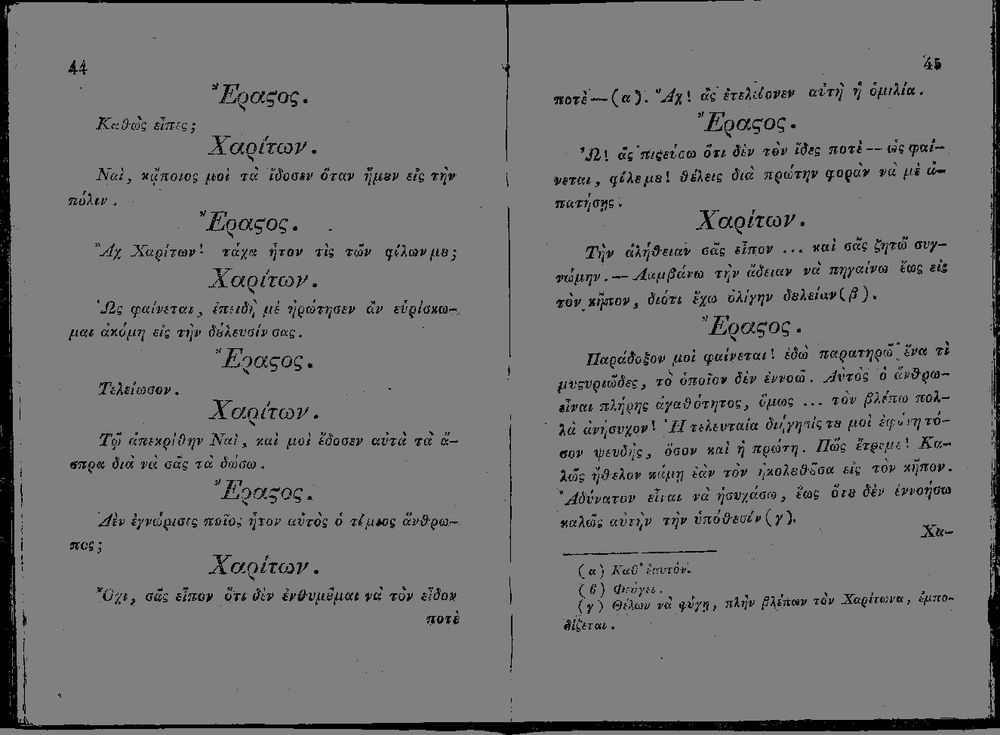 44
Ἔραϛος.
Καθὼς εἶπες;
Χαρίτων.
Ναὶ, κᾄποιος μοὶ τὰ ἴδοσεν ὅταν ἤμȣν εἰς τὴν
πόλιν.
Ἔραϛος.
Ἂχ Χαρίτων! τάχα ἦτον τὶς τῶν φίλων μȣ;
Χαρίτων.
Ὡς φαίνεται, ἐπειδὴ μὲ ἠρώτησεν ἂν εὑρίσκω-
μαι ἀκόμη εἰς τὴν δȣ́λευσίν σας.
Ἔραϛος.
Τελείωσον.
Χαρίτων.
Τῷ ἀπεκρίθην Ναὶ, καὶ μοὶ ἔδοσεν αὐτὰ τὰ ἄ-
σπρα διὰ νὰ σᾶς τὰ δώσω.
Ἔραϛος.
Δὲν ἐγνώρισες ποῖος ἦτον αὐτὸς ὁ τίμιος ἄνθρω-
πος;
Χαρίτων.
Ὄχι, σᾶς εἶπον ὅτι δὲν ἐνθυμȣ͂μαι νὰ τὸν εἶδον
ποτὲ
45
ποτὲ — (α). Ἂχ! ἂς ἐτελείονεν αὐτὴ ἡ ὁμιλία.
Ἔραϛος.
Ὢ! ἂς πιϛεύσω ὅτι δὲν τὸν ἴδες ποτὲ — ὡς φαί-
νεται, φίλε μȣ! θέλεις διὰ πρώτην φορὰν νὰ μὲ ἀ-
πατήσῃς.
Χαρίτων.
Τὴν ἀλήθειαν σᾶς εἶπον ... καὶ σᾶς ζητῶ συγ-
νώμην. — Λαμβάνω τὴν ἄδειαν νὰ πηγαίνω ἕως εἰς
τὸν κῆπον, διότι ἔχω ὀλίγην δȣλείαν (β).
Ἔραϛος.
Παράδοξον μοὶ φαίνεται! ἐδῶ παρατηρῶ ἕνα τὶ
μυϛυριῶδες, τὸ ὁποῖον δὲν ἐννοῶ. Αὐτὸς ὁ ἄνθρω-
είναι πλήρης ἀγαθότητος, ὅμως ... τὸν βλέπω πολ-
λὰ ἀνήσυχον! Ἡ τελευταία διήγησίς τȣ μοὶ ἐφάνη τό-
σον ψευδὴς, ὅσον καὶ ἡ πρώτη. Πῶς ἔτρεμε! Κα-
λῶς ἤθελον κάμῃ ἐὰν τὸν ἠκολȣθȣ͂σα εἰς τὸν κῆπον.
Ἀδύνατον εἶναι νὰ ἡσυχάσω, ἕως ὅτȣ δὲν ἐννοήσω
καλῶς αὐτὴν τὴν ὑπόθεσίν (γ).
Χα-
(α) Καθ' ἑαυτόν.
(β) Φεύγει.
(γ) Θέλων νὰ φύγῃ, πλὴν βλέπων τὸν Χαρίτωνα, ἐμπο-
δίζεται.